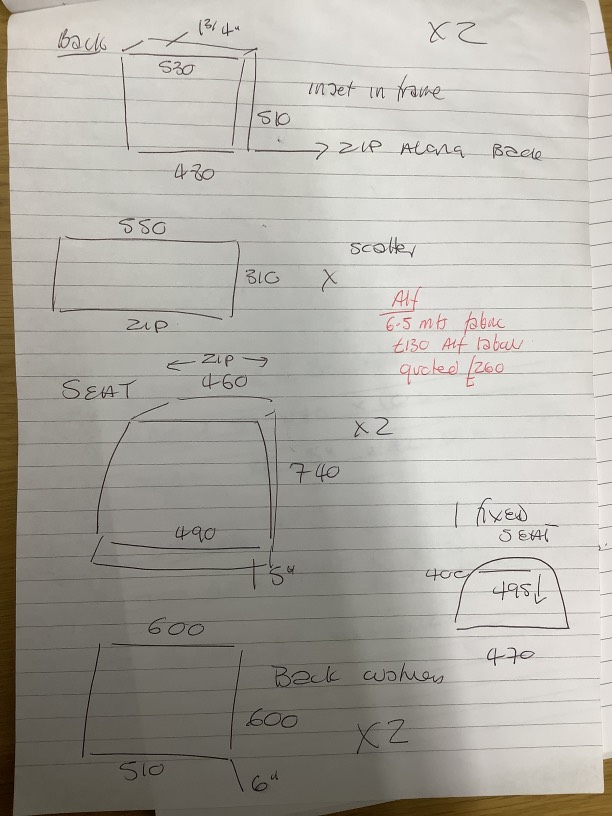 Back
1 3/4"
X2
530
inset in frame
510
ZIP Along Back
480
550
scatter
310 X
ZIP
Alf
6.5 mts fabric
£130 Alf labour
quoted £260
ZIP
SEAT 460
X2
740
490
5"
1 fixed
SEAT
400
495
470
600
Back cushion
600
X2
510
6"